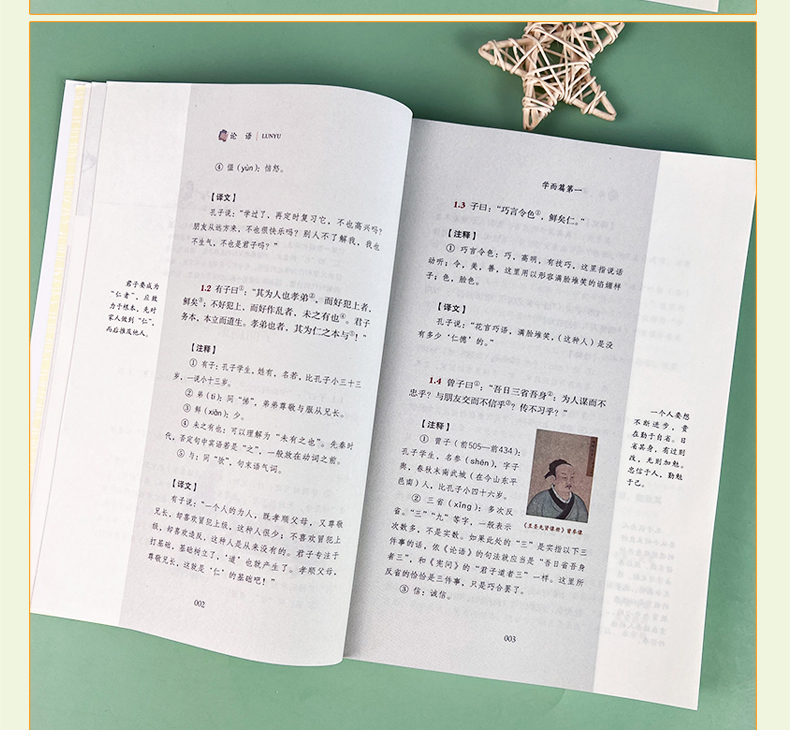 论 语 | LUNYU
④ 愠（yùn）：恼怒。
【译文】
孔子说：“学过了，再定时复习它，不也高兴吗？
朋友从远方来，不也很快乐吗？别人不了解我，我也
不生气，不也是君子吗？”
君子要成为
“仁者”，应致
力于根本，先对
家人做到“仁”，
而后推及他人。
1.2 有子曰①：“其为人也孝弟②，而好犯上者，
鲜矣③；不好犯上，而好作乱者，未之有也④。君子
务本，本立而道生。孝弟也者，其为仁之本与⑤！”
【注释】
① 有子：孔子学生，姓有，名若，比孔子小三十三
岁，一说小十三岁。
② 弟（tì）：同“悌”，弟弟尊敬与服从兄长。
③ 鲜（xiǎn）：少。
④ 未之有也：可以理解为“未有之也”。先秦时
代，否定句中宾语若是“之”，一般放在动词之前。
⑤ 与：同“欤”，句末语气词。
【译文】
有子说：“一个人的为人，既孝顺父母，又尊敬
兄长，却喜欢冒犯上级，这种人很少；不喜欢冒犯上
级，却喜欢造反，这种人是从来没有的。君子专注于
打基础，基础树立了，‘道’也就产生了。孝顺父母，
尊敬兄长，这就是‘仁’的基础吧！”
002
学而篇第一
1.3 子曰：“巧言令色①，鲜矣仁。”
【注释】
① 巧言令色：巧，高明，有技巧，这里指说话
动听；令，美，善，这里用以形容满脸堆笑的谄媚样
子；色，脸色。
【译文】
孔子说：“花言巧语，满脸堆笑，（这种人）是没
有多少‘仁德’的。”
1.4 曾子曰①：“吾日三省吾身②：为人谋而不
忠乎？与朋友交而不信乎③？传不习乎？”
【注释】
① 曾子（前505—前434）：
孔子学生，名参（shēn），字子
舆，春秋末南武城（在今山东平
邑南）人，比孔子小四十六岁。
② 三省（xǐng）：多次反
省。“三”“九”等字，一般表示
次数多，不是实数。如果此处的“三”是实指以下三
件事的话，依《论语》的句法就应当是“吾日省吾身
者三”，和《宪问》的“君子道者三”一样。这里所
反省的恰恰是三件事，只是巧合罢了。
③ 信：诚信。
《至圣先贤像册》曾参像
一个人要想
不断进步，贵
在勤于自省。日
省其身，有过则
改，无则加勉。
忠信于人，勤勉
于己。
003